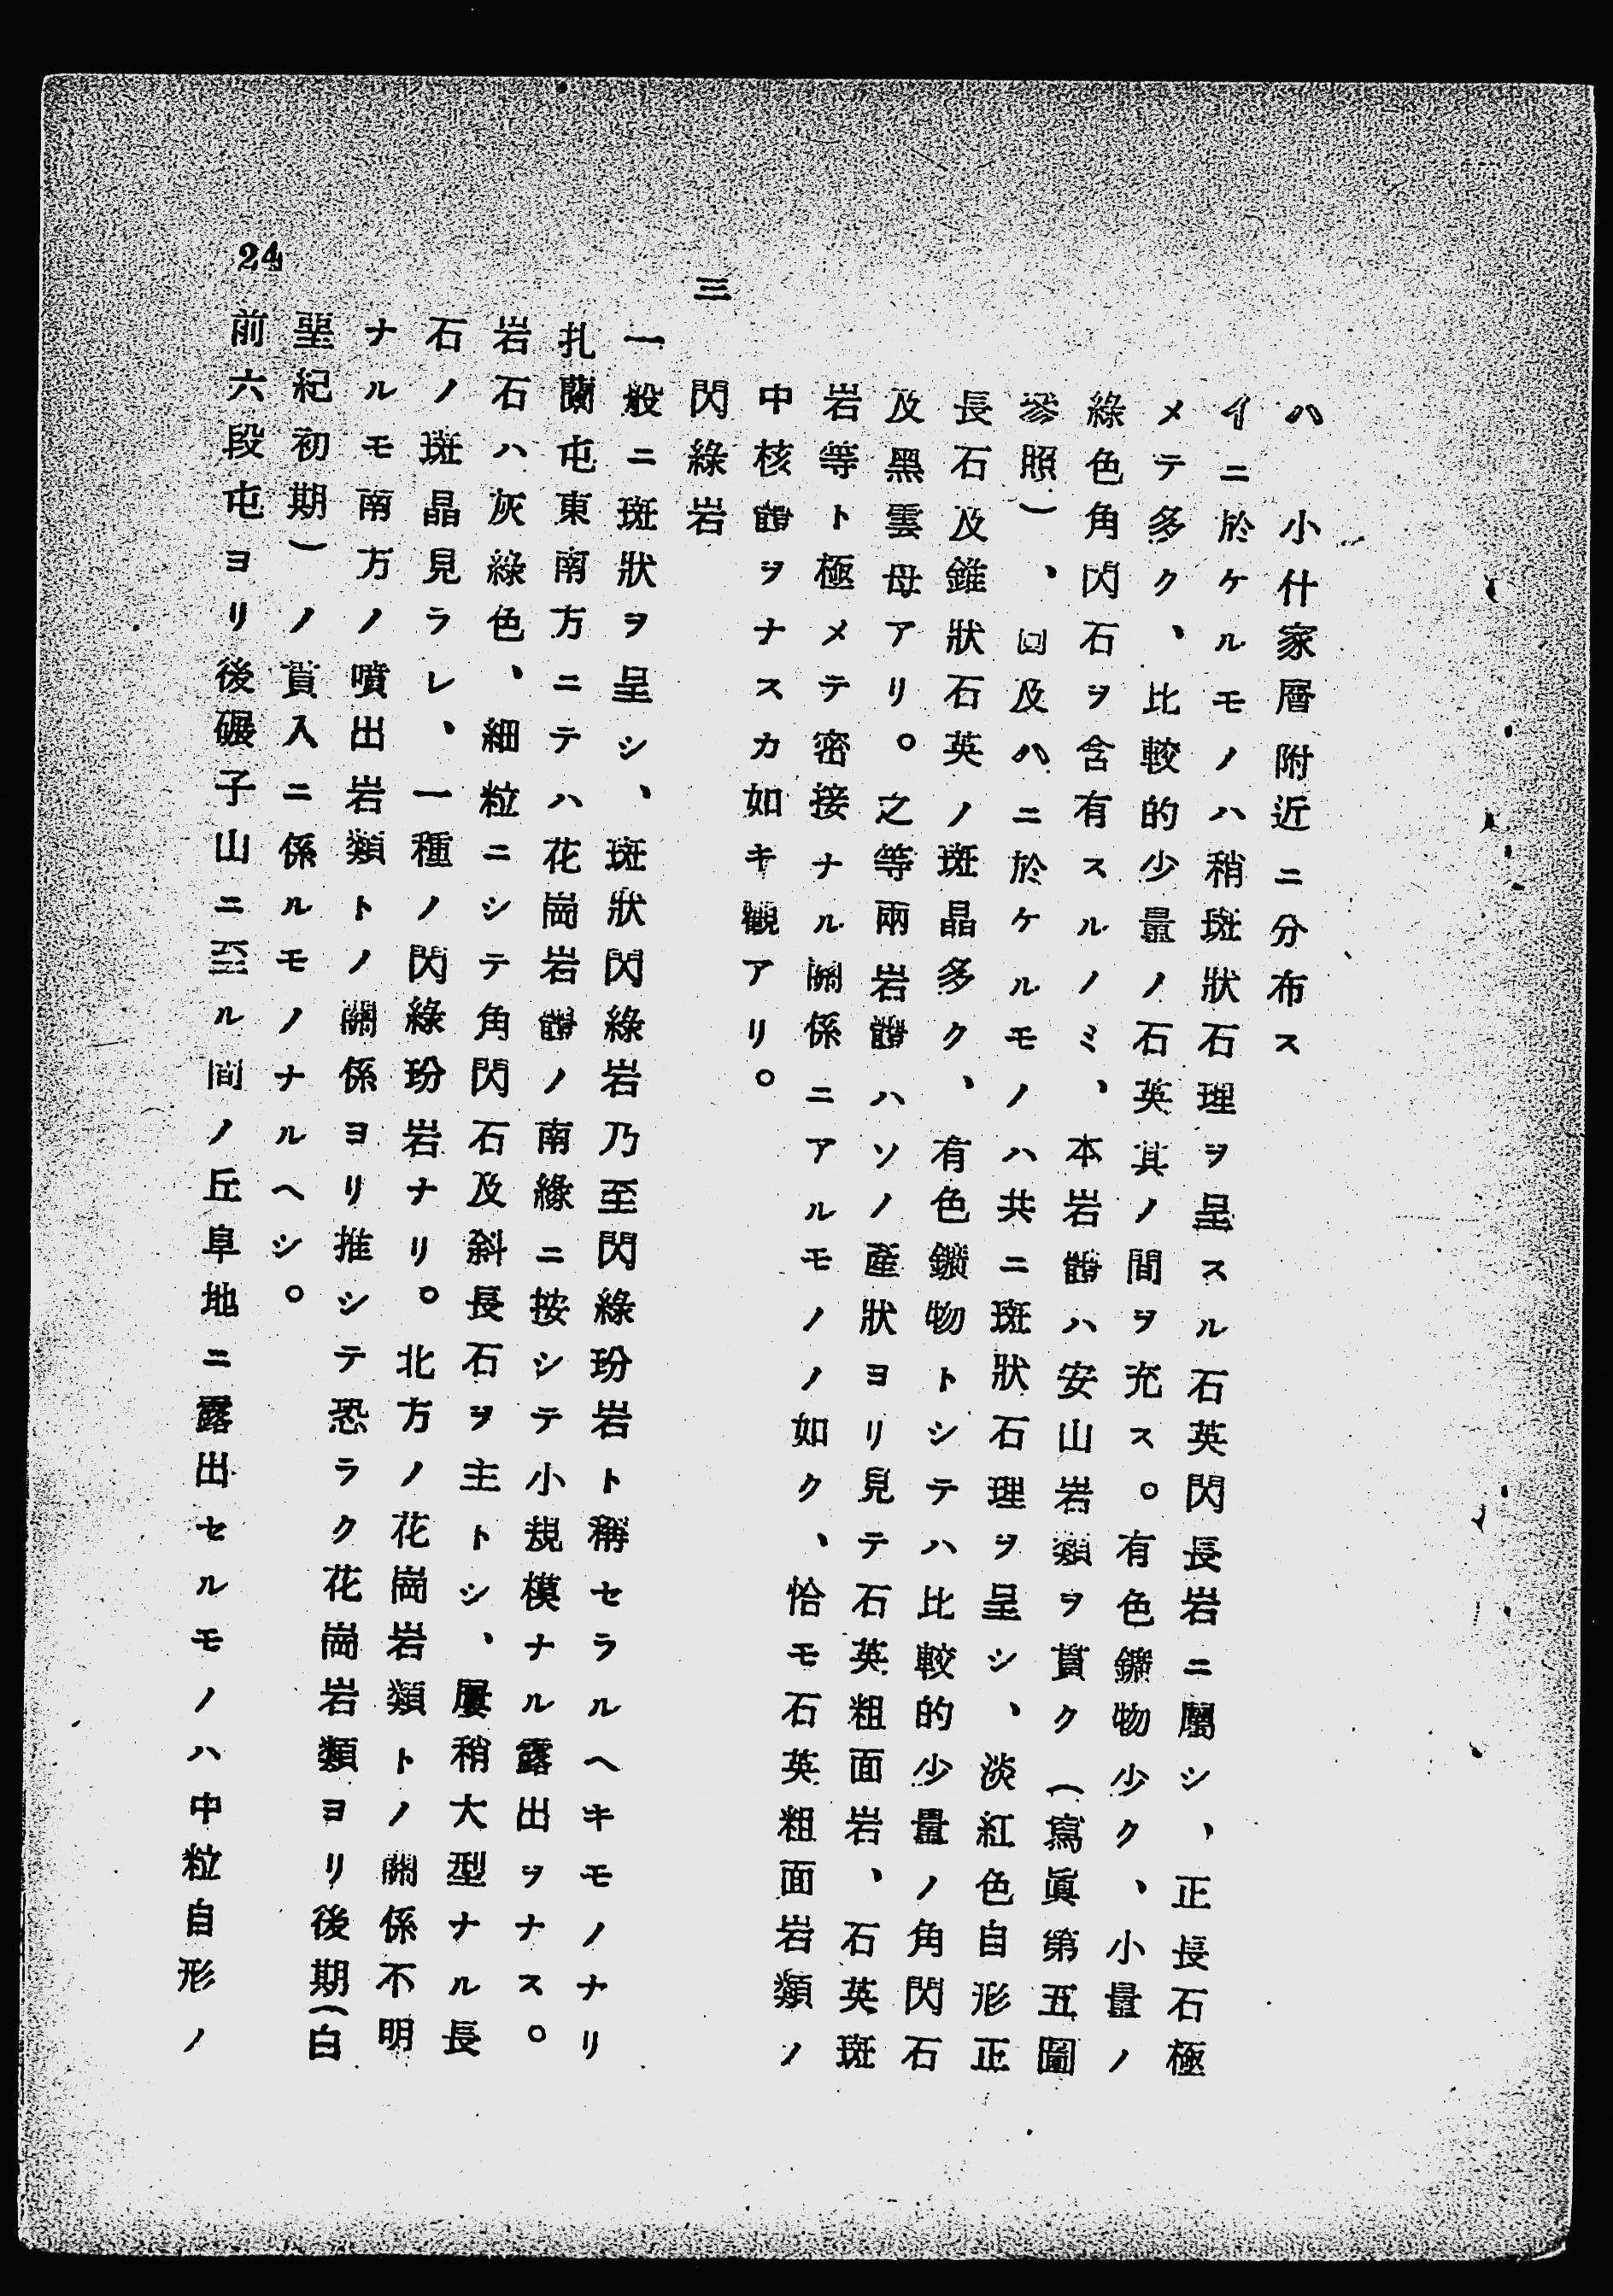 ハ 小什家層附近ニ分布ス
イニ於ケルモノハ稍斑狀石理ヲ呈スル石英閃長岩ニ屬シ、正長石極
メテ多ク、比較的少量ノ石英其ノ間ヲ充ス。有色鑛物少ク、小量ノ
綠色角閃石ヲ含有スルノミ、本岩體ハ安山岩類ヲ貫ク(寫眞第五圖
參照)、ロ及ハニ於ケルモノハ共ニ斑狀石理ヲ呈シ、淡紅色自形正
長石及錐狀石英ノ斑晶多ク、有色鑛物トシテハ比較的少量ノ角閃石
及黑雲母アリ。之等兩岩體ハソノ產狀ヨリ見テ石英粗面岩、石英斑
岩等ト極メテ密接ナル關係ニアルモノノ如ク、恰モ石英粗面岩類ノ
中核體ヲナスカ如キ觀アリ。
三 閃綠岩
一般ニ斑狀ヲ呈シ、斑狀閃綠岩乃至閃綠玢岩ト稱セラルヘキモノナリ
扎蘭屯東南方ニテハ花崗岩體ノ南緣ニ接シテ小規模ナル露出ヲナス。
岩石ハ灰綠色、細粒ニシテ角閃石及斜長石ヲ主トシ、屢稍大型ナル長
石ノ斑晶見ラレ、一種ノ閃綠玢岩ナリ。北方ノ花崗岩類トノ關係不明
ナルモ南方ノ噴出岩類トノ關係ヨリ推シテ恐ラク花崗岩類ヨリ後期(白
堊紀初期)ノ貫入ニ係ルモノナルヘシ。
前六段屯ヨリ後碾子山ニ至ル間ノ丘阜地ニ露出セルモノハ中粒自形ノ
24